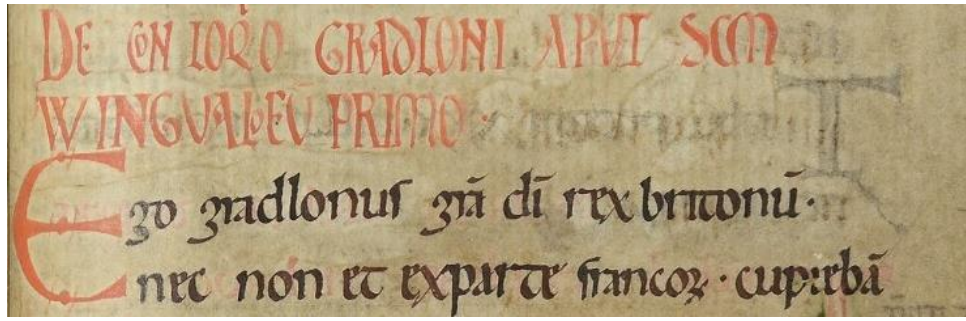 DE CON LOQ̄O GRADLONI APUT SC̄M
WINGUALOEŪ PRIMO·
Ego gradlonus gr̄a dī rex brittonū·
nec non et exparte francoꝝ· cupiebā